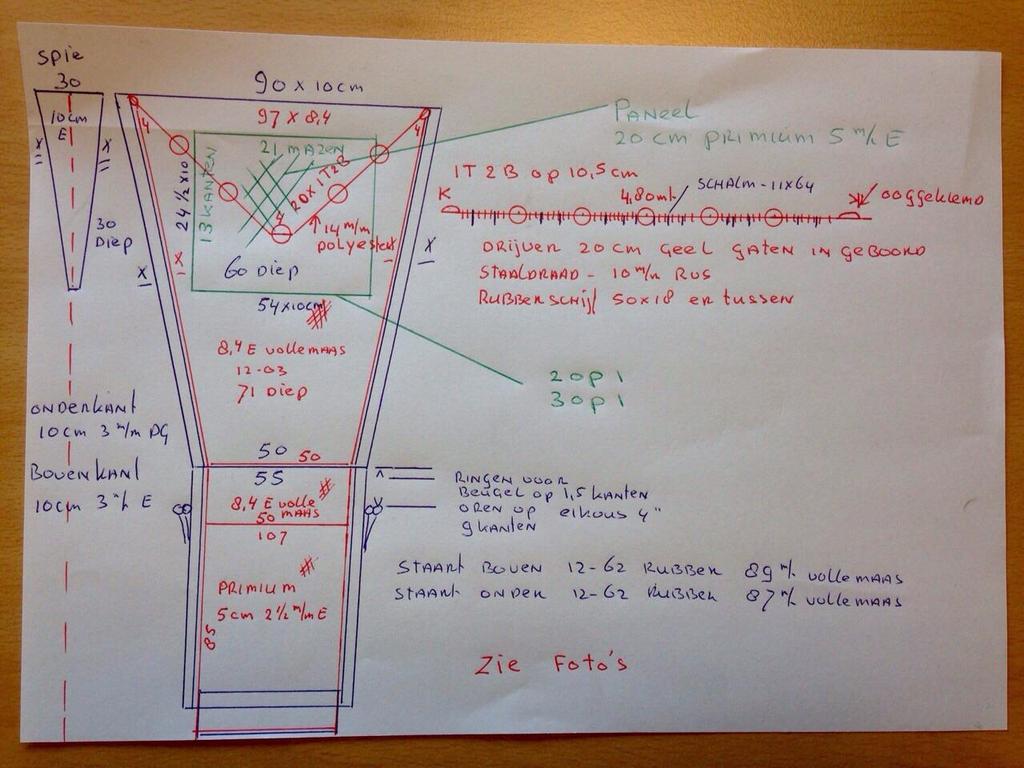 Spie
30
10cm
E
30
Diep
90 x 10cm
97 x 8,4
4
4
21 mazen
20x 1T2B
24 1/2 x 10
13 kanten
14 m/m
polyester
60 Diep
54x10cm
8,4 E volle maas
12-03
71 Diep
50 50
55
8,4 E volle
maas
50
107
Primium
5cm 2 1/2 m/m E
85
Onderkant
10cm 3 m/m PG
Bovenkant
10cm 3 m/ E
Paneel
20 cm primium 5 m/ E
1T 2B op 10,5 cm
4,80mt
Schalm - 11x64
K
ooggeklemd
Drijver 20cm geel gaten in geboord
Staaldraad - 10 m/m RVS
Rubberschijf 50x18 er tussen
2 op 1
3 op 1
Ringen voor
Beugel op 1,5 kanten
oren op 4"
9 kanten
Staart boven 12-62 Rubber 89 m/ volle maas
Staart onder 12-62 Rubber 87 m/ volle maas
Zie Foto's